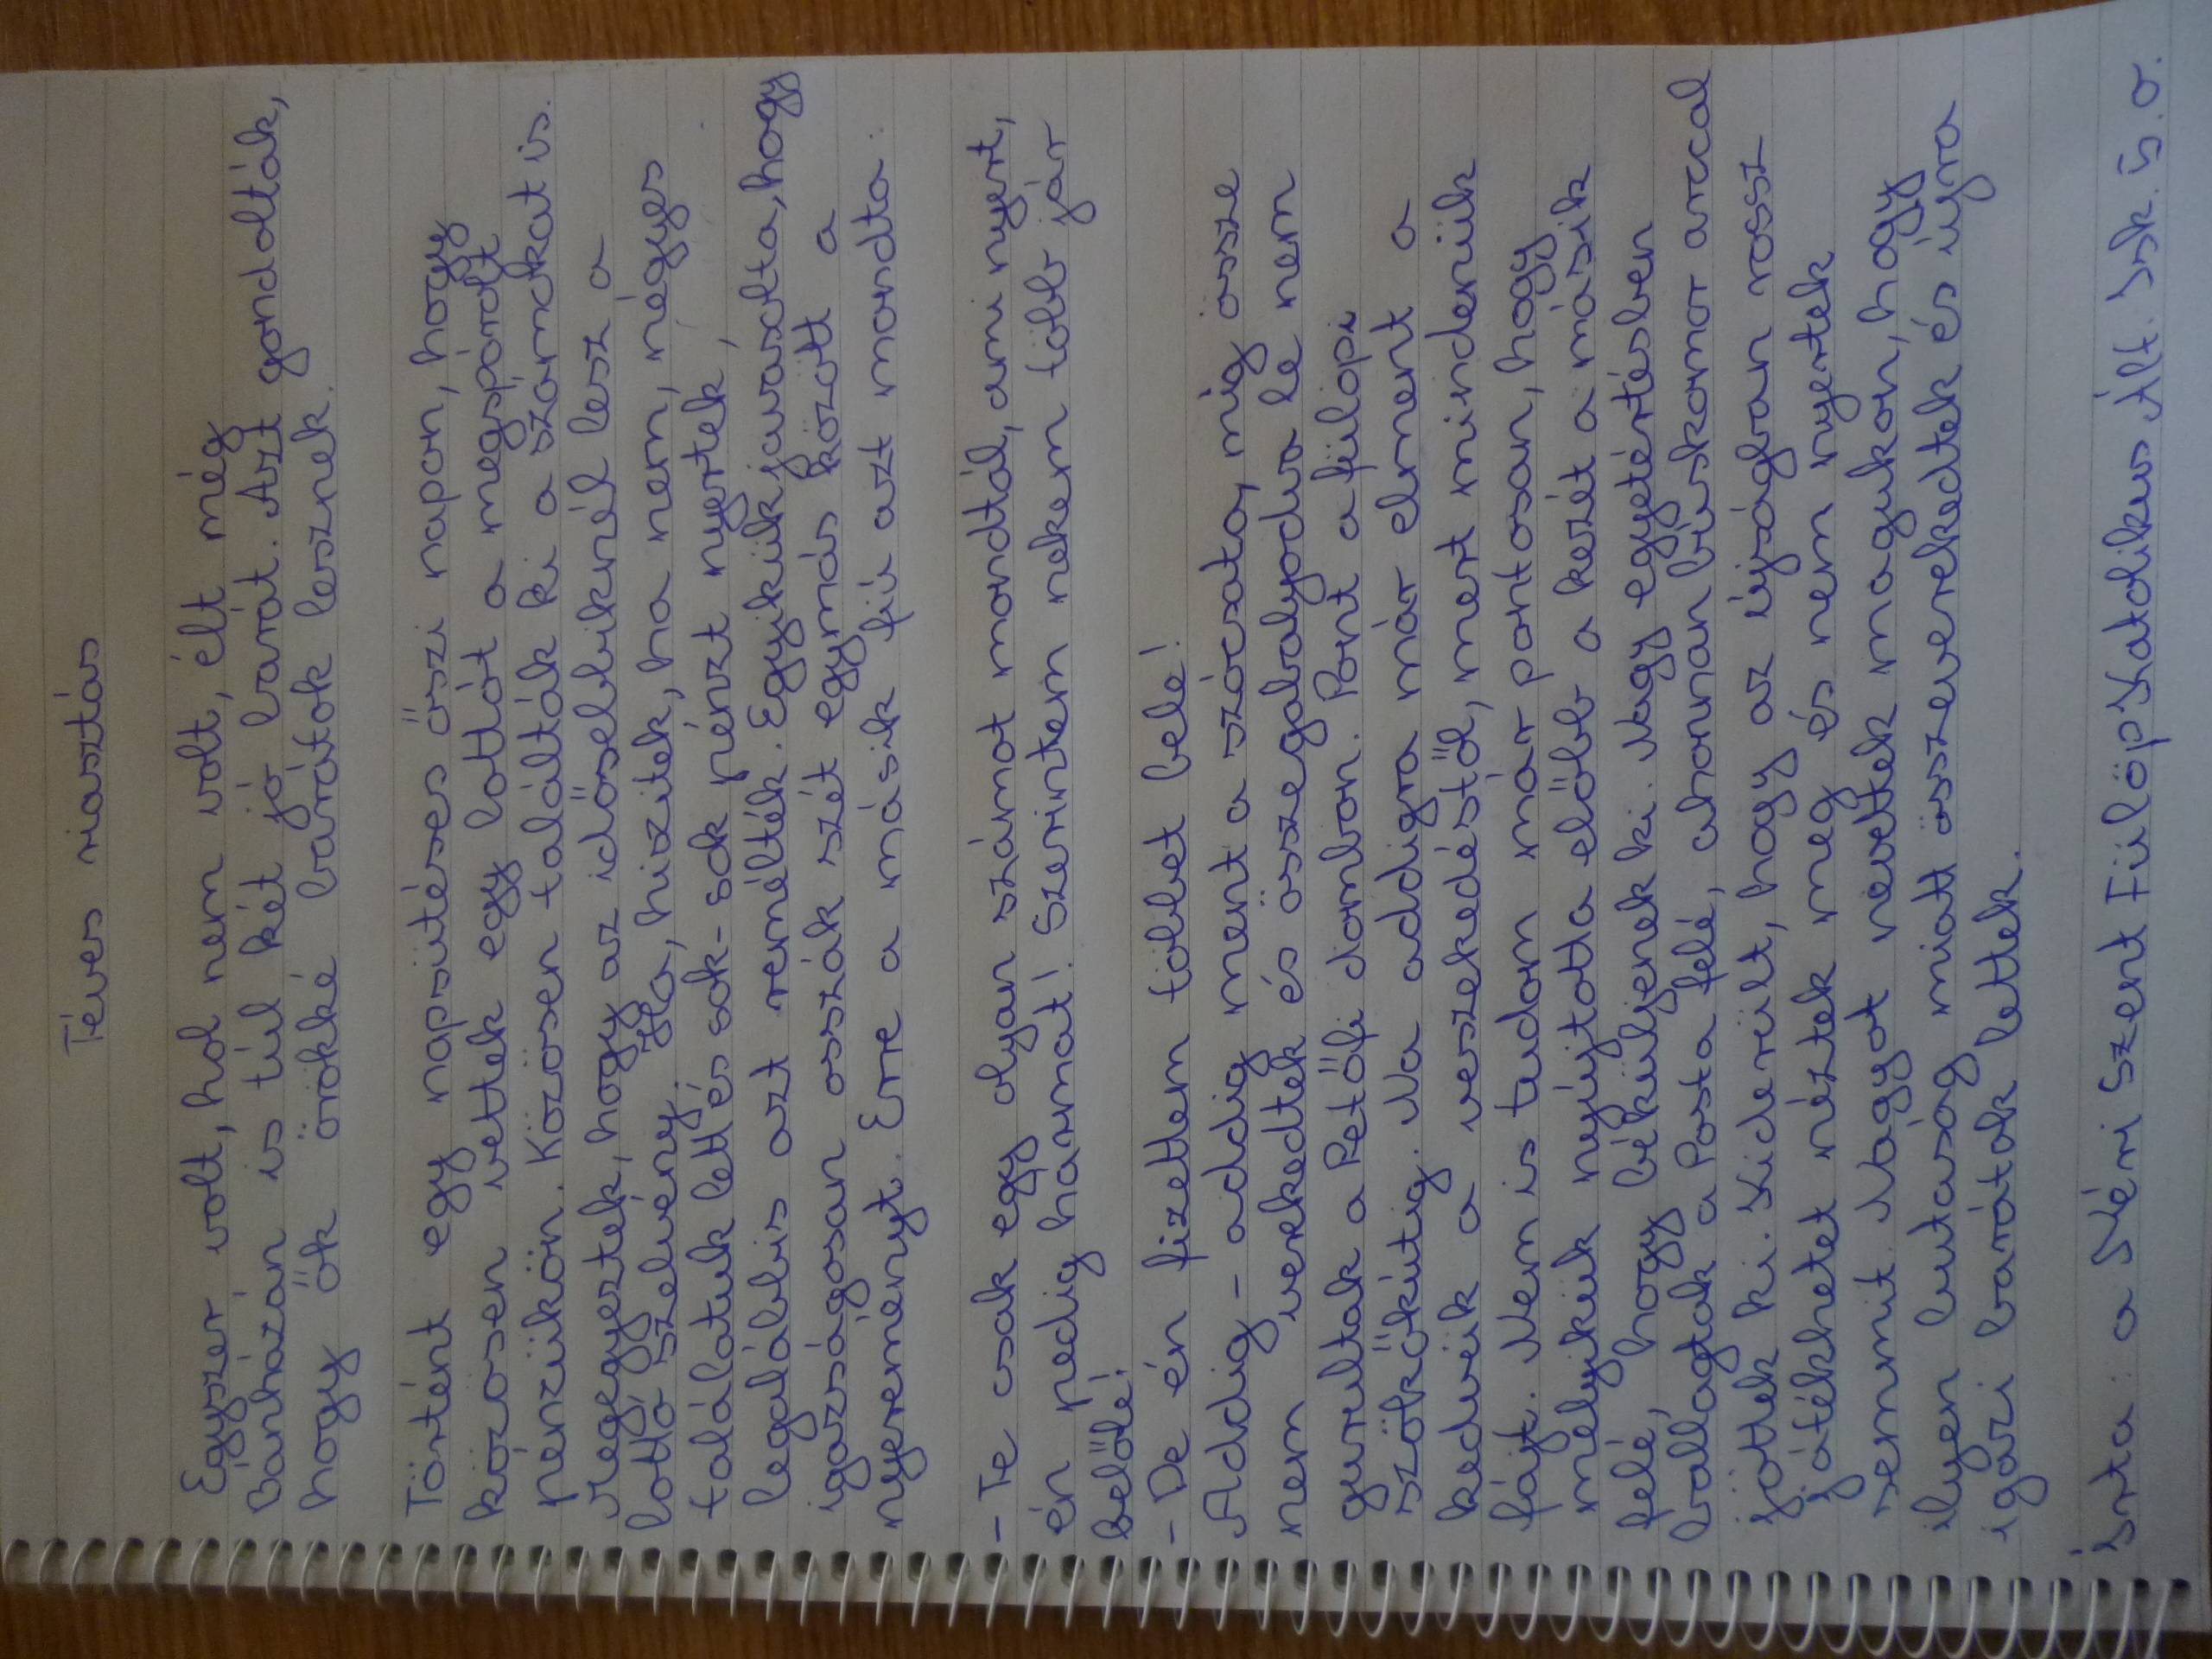 Téves riasztás
Egyszer volt, hol nem volt, élt még
Bánházán is túl két jó barát. Azt gondolták,
hogy ők örökké barátok lesznek.
Történt egy napsütéses őszi napon, hogy
közösen vettek egy lottót a megspórolt
pénzükön. Közösen találták ki a számokat is.
Megegyeztek, hogy az idősebbiknél lesz a
lottó szelvény. Ha, hiszitek, ha nem, négyes
találatuk lett és sok-sok pénzt nyertek,
legalábbis azt remélték. Egyikük javasolta, hogy
igazságosan osszák szét egymás között a
nyereményt. Erre a másik fiú azt mondta:
- Te csak egy olyan számot mondtál, ami nyert,
én pedig hármat! Szerintem nekem több jár
belőle!
- De én fizettem többet bele!
Addig - addig ment a szócsata, míg össze
nem verekedtek és összegabalyodva le nem
gurultak a Petőfi dombon. Pont a fülöpi
szökőkútig. Na addigra már elment a
kedvük a veszekedéstől, mert mindenük
fájt. Nem is tudom már pontosan, hogy
melyikük nyújtotta előbb a kezét a másik
felé, hogy béküljenek ki. Nagy egyetértésben
ballagtak a Posta felé, ahonnan búskomor arccal
jöttek ki. Kiderült, hogy az újságban rossz
játékhetet néztek meg és nem nyertek
semmit. Nagyot nevettek magukon, hogy
ilyen butaság miatt összeverekedtek és újra
igazi barátok lettek.
Írta: a Néri Szent Fülöp Katolikus Ált. Isk. 5. o.